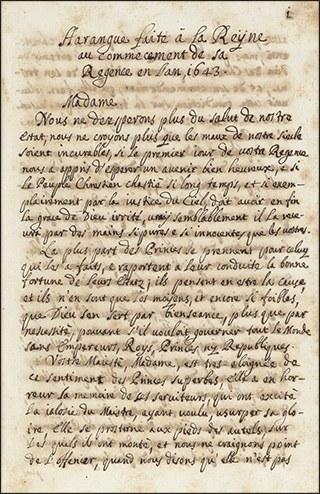 1
Harangue faite à la Reyne
au Commecement de sa
Regence en l'an, 1643.
Madame
Nous ne dezesperons plus du salut de nostre
Estat, nous ne croyons plus que les maux de nostre siecle
soient incurables, si le premier iour de vostre Regence
nous a appris d'esperer un avenir bien heureux, et si
le Peuple Chrestien chastié si long temps, et si exem-
plairement par la iustice du Ciel, doit avoir en fin
la grace de Dieu irrité, vray semblablement il la rece-
vra par des mains si pures et si innocentes que les vostres.
La plus part des Princes se prennent pour celuy
qui les a faits, et raportent a leur conduite la bonne
fortune de leurs Estatz; ils pensent en estre la cause
et ils n'en sont que les moyens, et encore si foibles,
que Dieu s'en sert par bienseance, plus que par
necessité, pouvant s'il vouloit gouverner tout le Monde
sans Empereurs, Roys, Princes ny Republiques.
Vostre Maiesté, Madame, est tres eloignée de
ce sentiment des Princes superbes, Elle a en hor-
reur la memoire de ces serviteurs, qui ont excité
la ialousie du Maistre, ayant voulu usurper sa glo-
ire Elle se prosterne aux pieds des autels, sur
les quels ils ont monté, et nous ne craignons point
de l'offencer, quand nous disons qu'elle n'est pas